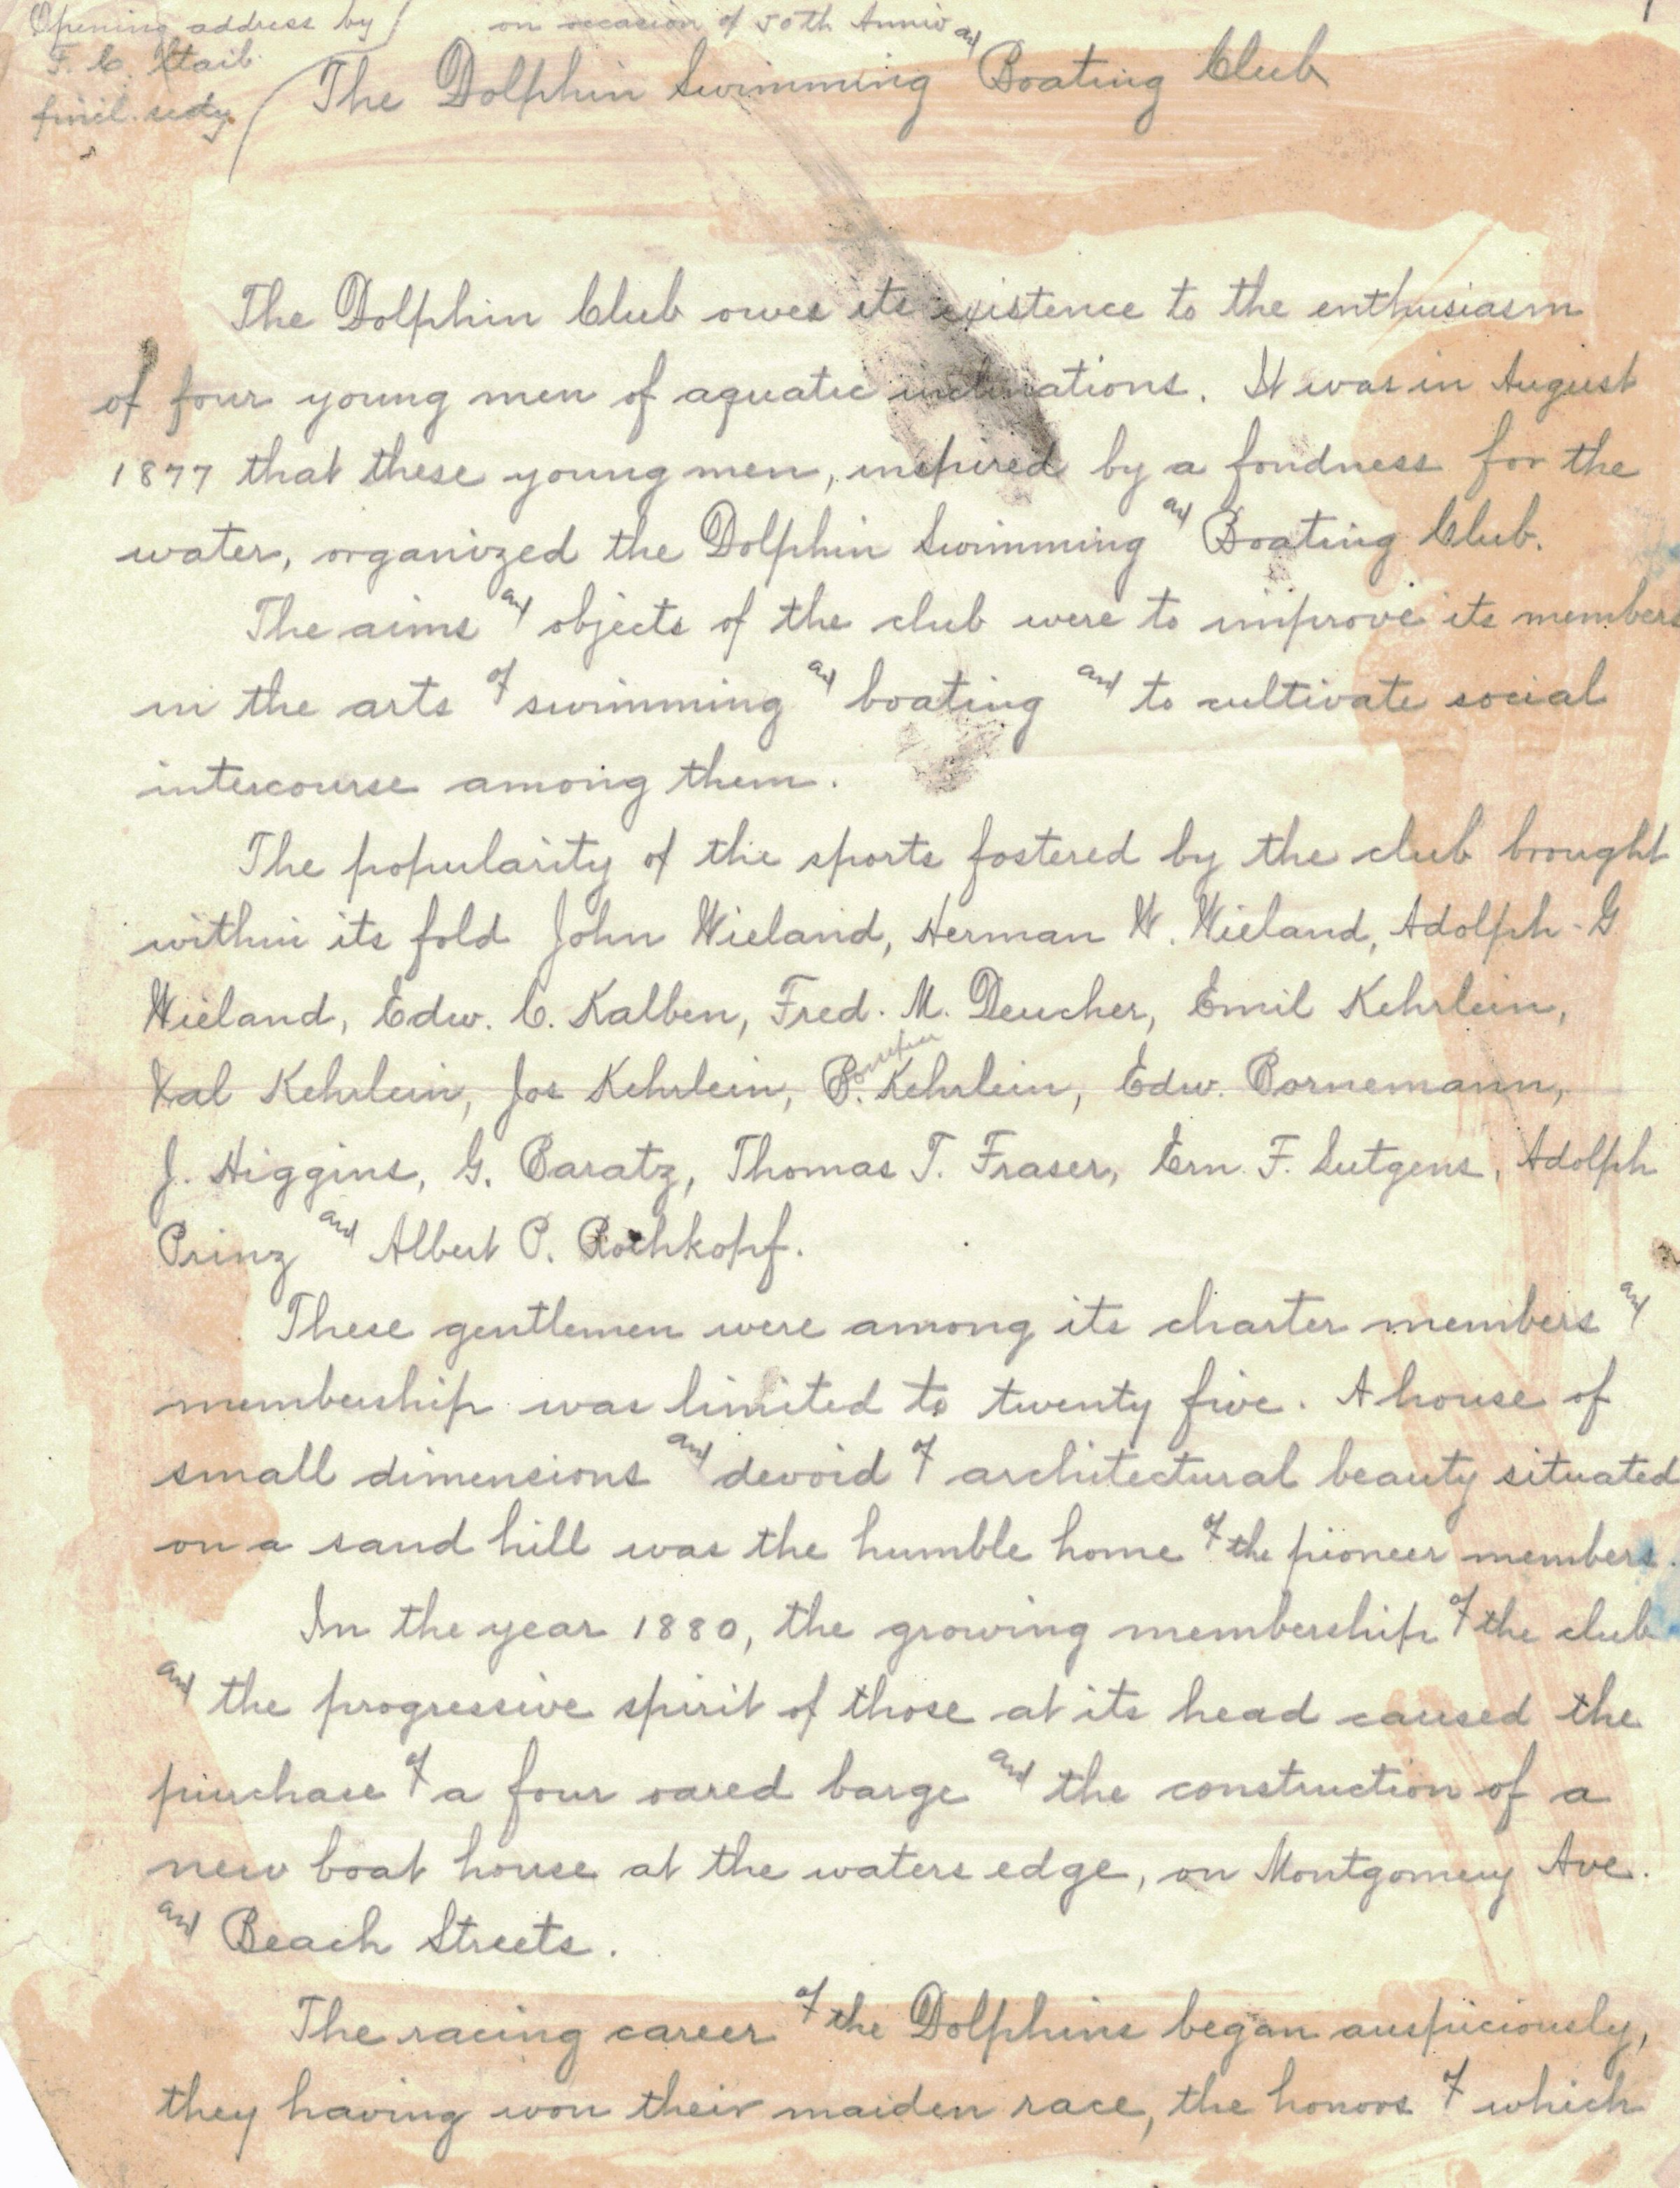 Opening address by
F. C. Staib
finl. secty.
on occasion of 50th Anniv
The Dolphin Swimming and Boating Club
The Dolphin Club owes its existence to the enthusiasm
of four young men of aquatic inclinations. It was in August
1877 that these young men, inspired by a fondness for the
water, organized the Dolphin Swimming and Boating Club.
The aims and objects of the club were to improve its members
in the arts of swimming and boating and to cultivate social
intercourse among them.
The popularity of the sports fostered by the club brought
within its fold John Wieland, Herman W. Wieland, Adolph G
Wieland, Edw. C. Kalben, Fred. M. Deucher, Emil Kehrlein,
Val Kehrlein, Jos Kehrlein, B. Kehrlein, Edw. Bornemann,
J. Higgins, G. Baratz, Thomas T. Fraser, Ern F. Lutgens, Adolph
Prinz and Albert P. Rothkopf.
These gentlemen were among its charter members and
membership was limited to twenty five. A house of
small dimensions and devoid of architectural beauty situated
on a sand hill was the humble home of the pioneer members.
In the year 1880, the growing membership of the club
and the progressive spirit of those at its head caused the
purchase of a four oared barge and the construction of a
new boat house at the waters edge, on Montgomery Ave.
and Beach Streets.
The racing career of the Dolphins began auspiciously,
they having won their maiden race, the honors of which